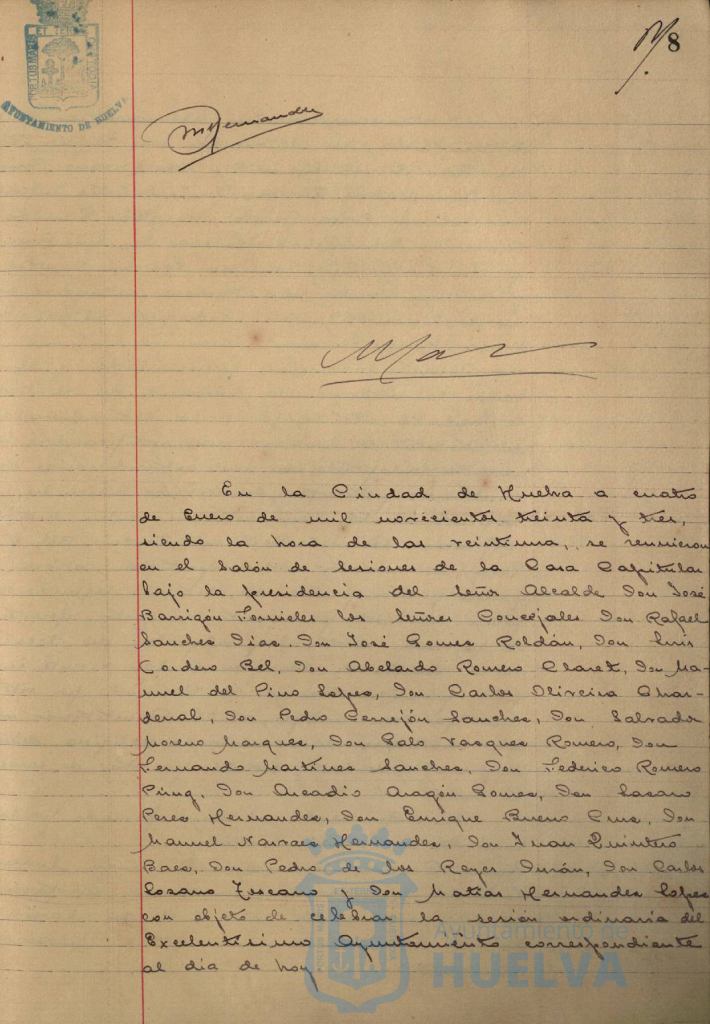 8
PORTUS MARIS ET TERRAE CUSTODIA
AYUNTAMIENTO DE HUELVA
MHernandez
En la Ciudad de Huelva a cuatro
de Enero de mil novecientos treinta y tres,
siendo la hora de las veintiuna, se reunieron
en el Salón de Sesiones de la Casa Capitular
bajo la presidencia del Señor Alcalde Don José
Barrigón Fornieles los Señores Concejales Don Rafael
Sanchez Dias, Don José Gomez Roldán, Don Luis
Cordero Bel, Don Abelardo Romero Claret, Don Ma-
nuel del Pino Lopez, Don Carlos Oliveira Char-
denal, Don Pedro Cerrejón Sanchez, Don Salvador
Moreno Marquez, Don Galo Vazquez Romero, Don
Fernando Martinez Sanchez, Don Federico Romero
Don Arcadio Aragón Gomez, Don Lazaro
Perez Hernandez, Don Enrique Bueno Cruz, Don
Manuel Narvaez Hernandez, Don Juan Quintero
Baez, Don Pedro de los Reyes Durán, Don Carlos
Lozano Toscano y Don Matías Hernandez Lopez
con objeto de celebrar la sesión ordinaria del
Excelentísimo Ayuntamiento correspondiente
al dia de hoy
Ayuntamiento de
HUELVA